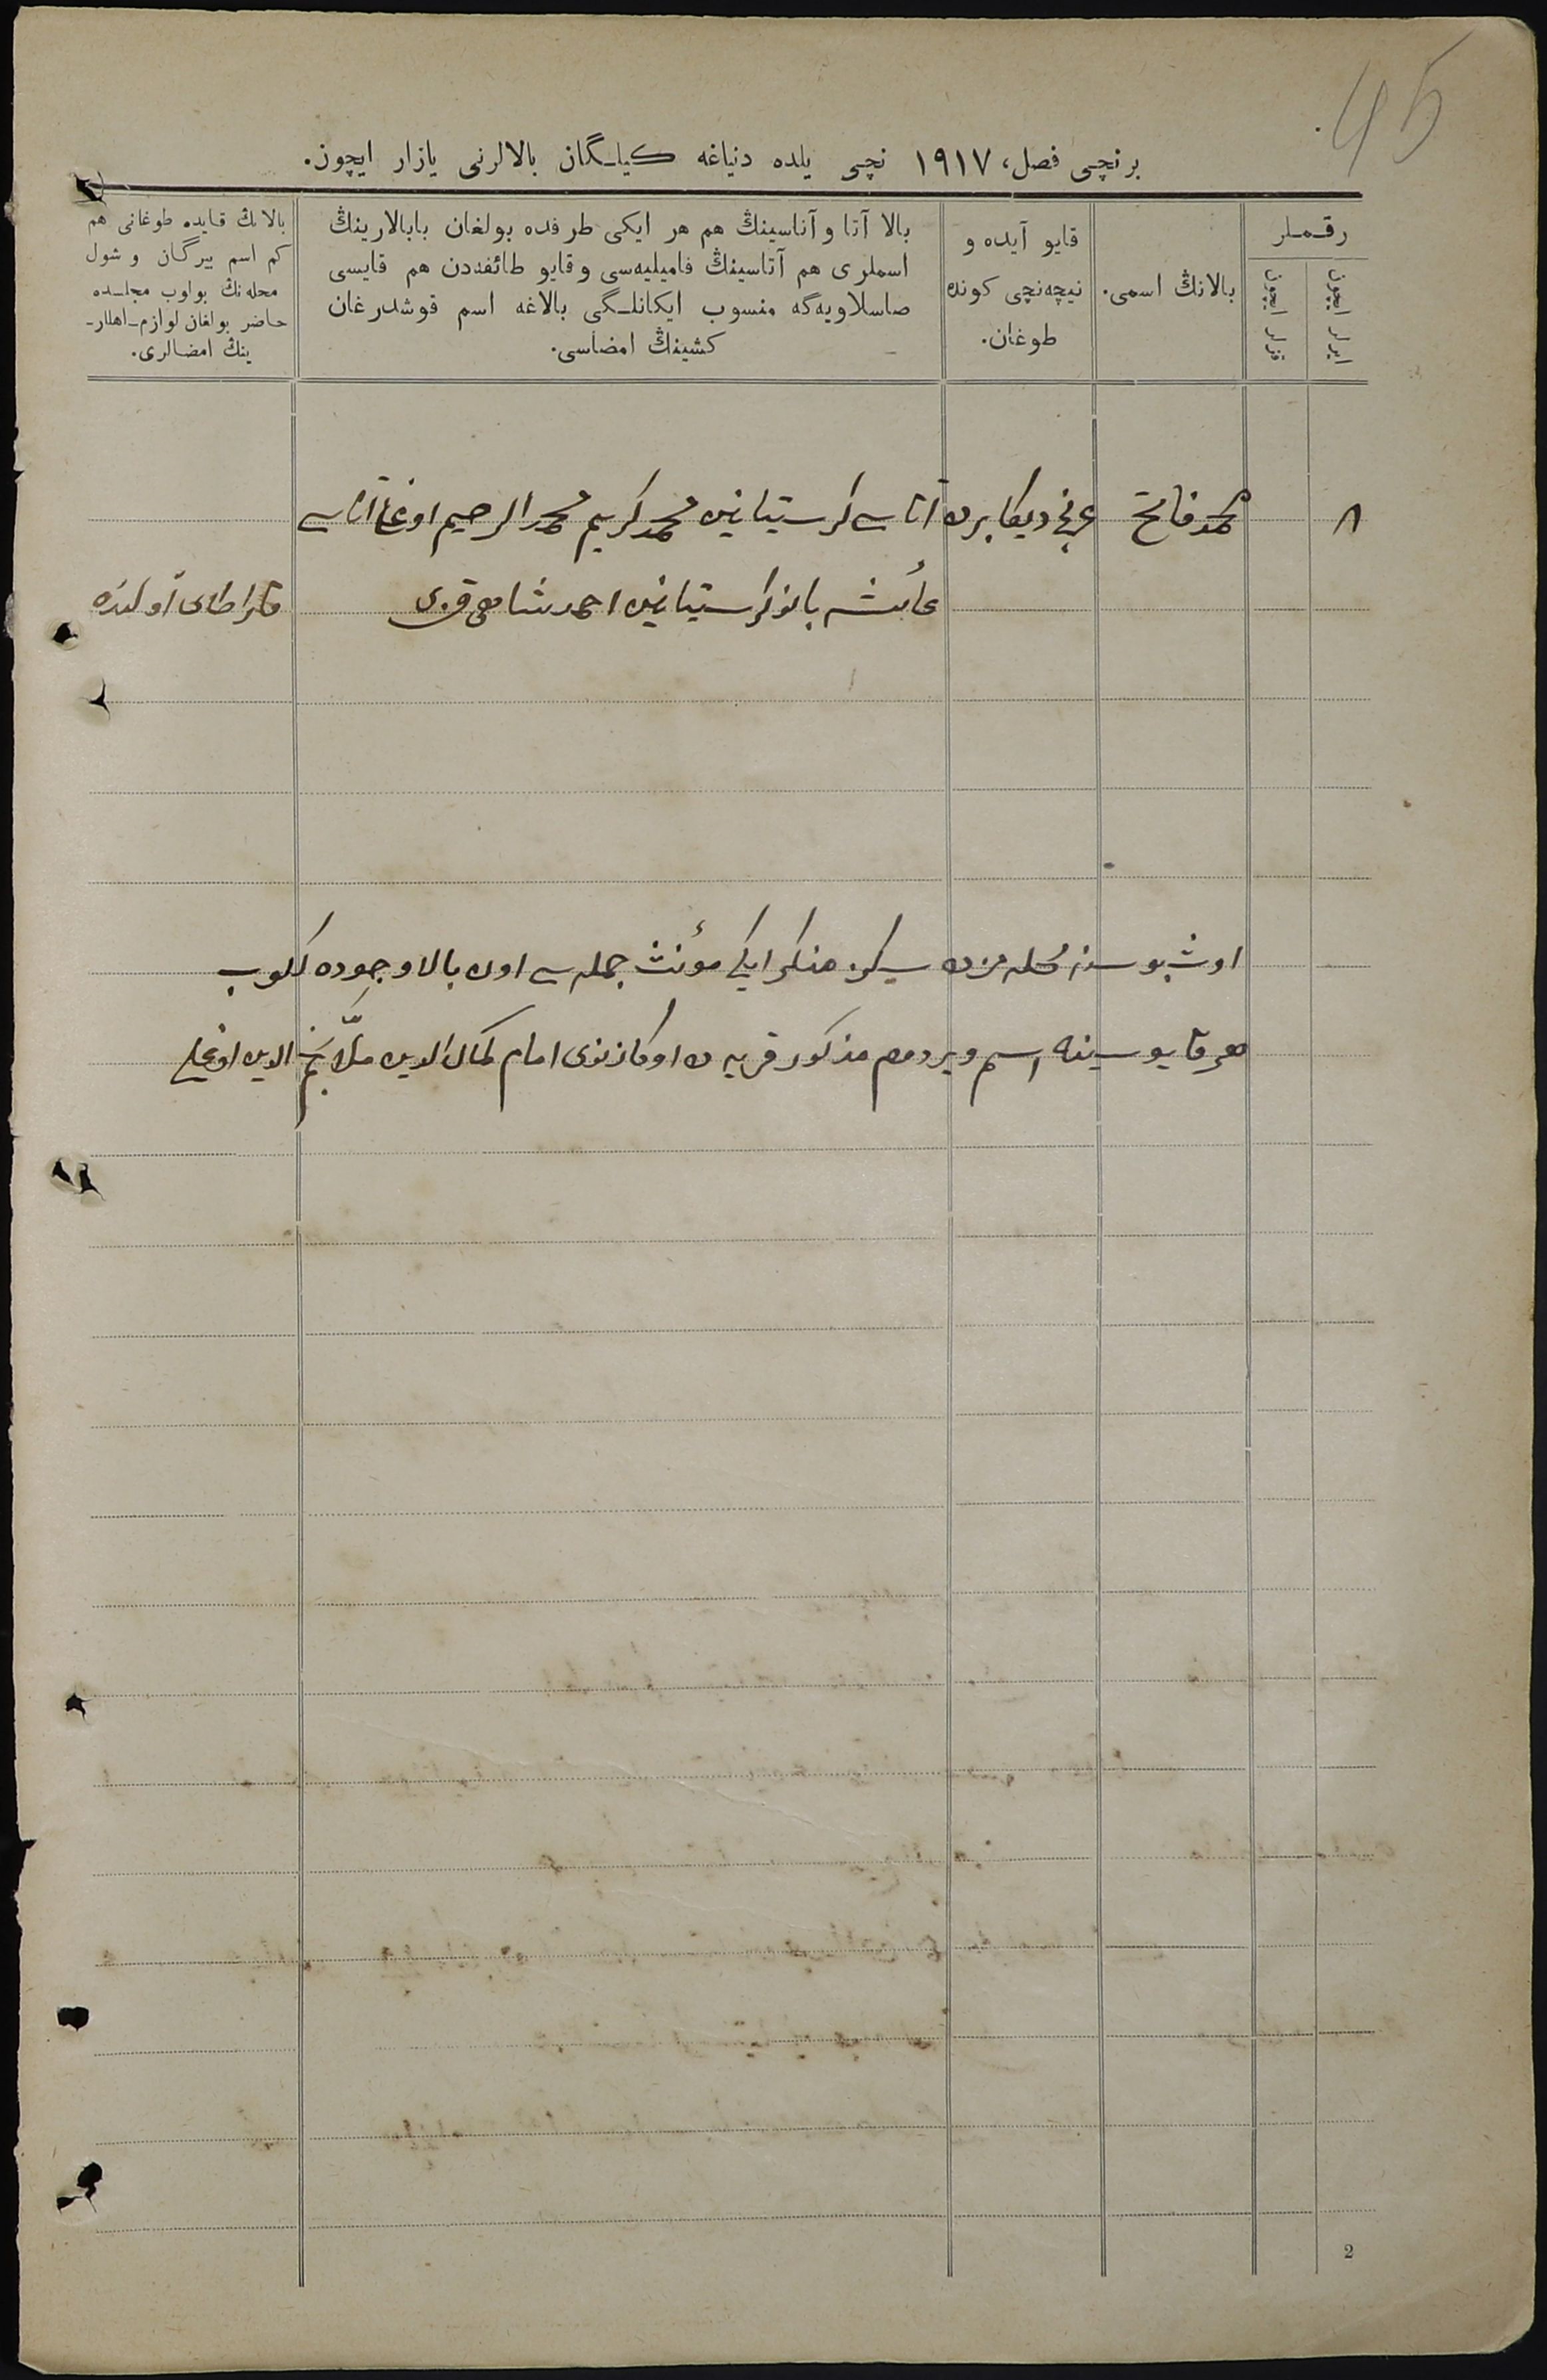 45
برنچی فصل، ١٩١٧ نچی یلده دنیاغه کیلـگان بالالرنی یازار ایچون.
رقـمـلر
ایرلر ایچون
قزلر ایچون
بالانڭ اسمی.
قایو آیده و
نیچه‌نچی کونده
طوغان.
بالا آتا و آناسینڭ هم هر ایکی طرفده بولغان بابالارینڭ
اسملری هم آتاسینڭ فامیلیه‌سی و قایو طائفه‌دن هم قایسی
صاسلاویه‌گه منسوب ایکانلـگی بالاغه اسم قوشدرغان
کشینڭ امضاسی.
بالانڭ قایده طوغانی هم
کم اسم بیرگان و شول
محله‌نڭ بولوب مجلـسده
حاضر بولغان لوازم-اهللر-
ینڭ امضالری.
٨ محمد فاتح دیکابرده آتاسی کرستیانین محمد کریم محمد الرحیم اوغلی آناسی
عائشه بانو کرستیانین احمدشاه قزی
اوشبو سنه محله‌مزده سیکز مذکر ایکی مؤنث جمله‌سی اون بالا وجوده کلوب
هر قایوسینه اسم ویردم مذکور قریه ده اوکازنوی امام کمال الدین ملا نجم الدین اوغلی
2